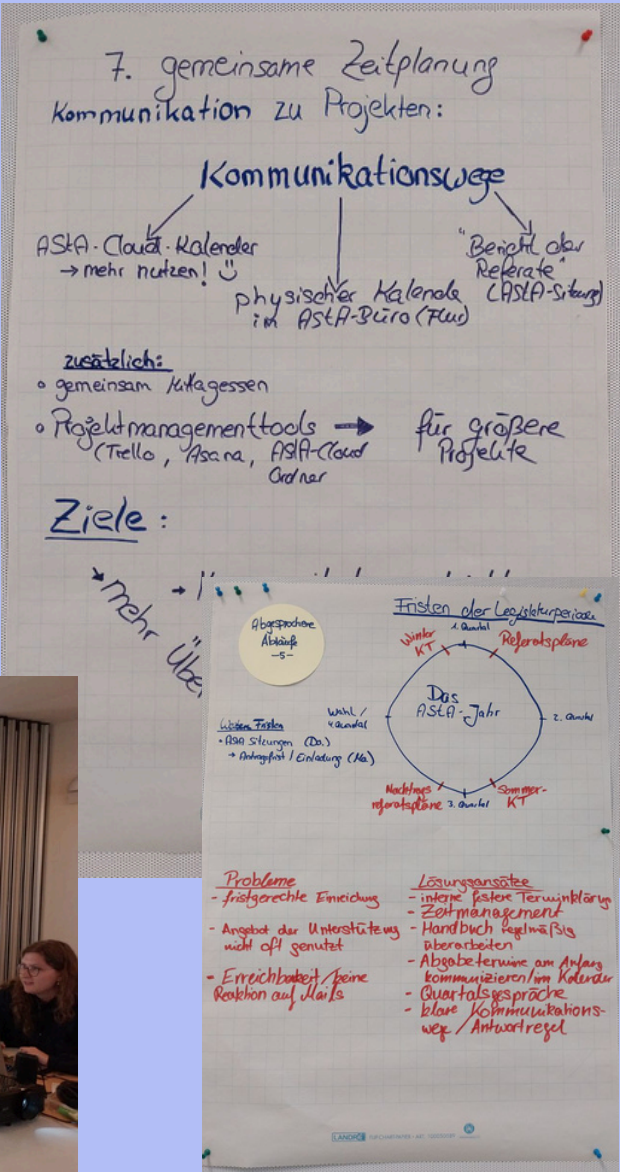 7. gemeinsame Zeitplanung
Kommunikation zu Projekten:
Kommunikationswege
AStA-Cloud-Kalender
→ mehr nutzen! ☺
physischer Kalender
im AStA-Büro (Flur)
"Bericht der
Referate"
(AStA-Sitzung)
zusätzlich:
• gemeinsam Mittagessen
• Projektmanagementtools → für größere
Projekte
(Trello, Asana, AStA-Cloud
Ordner
Ziele:
→ mehr
Fristen der Legislaturperiode
Abgesprochene
Abläufe
-5-
1. Quartal
Winter
KT
Referatspläne
Das
AStA-Jahr
Wahl /
4. Quartal
2. Quartal
Fristen
• AStA Sitzungen (Do.)
→ Antragsfrist / Einladung (Mo)
Nachtrags
referatspläne
3. Quartal
Sommer-
KT
Probleme
- fristgerechte Einreichung
- Angebot der Unterstützung
nicht oft genutzt
- Erreichbarkeit / keine
Reaktion auf Mails
Lösungsansätze
- interne festere Terminklärung
- Zeitmanagement
- Handbuch regelmäßig
überarbeiten
- Abgabetermine am Anfang
kommunizieren / im Kalender
- Quartalsgespräche
- klare Kommunikations-
wege / Antwortregel